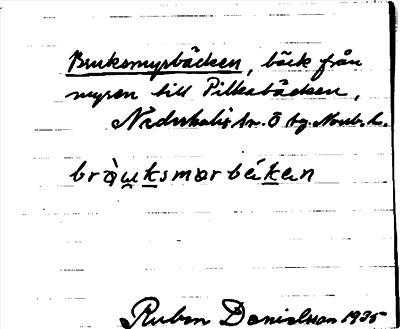 Bruksmyrbäcken, bäck från
myren till Pilkabäcken,
Nederkalix sn. Ö bg. Norrb. l.
bràu̯ksmorbékan
Ruben Danielsson 1935